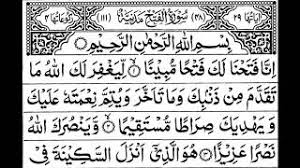 اٰيَاتُهَا ٢٩ (٤٨) سُوْرَةُ الْفَتْحِ مَدَنِيَّةٌ (١١١) رُكُوْعَاتُهَا ٤
بِسْمِ اللّٰهِ الرَّحْمٰنِ الرَّحِيْمِ
اِنَّا فَتَحْنَا لَكَ فَتْحًا مُّبِيْنًا ۙ لِّيَغْفِرَ لَكَ اللّٰهُ مَا
تَقَدَّمَ مِنْ ذَنْۢبِكَ وَمَا تَاَخَّرَ وَيُتِمَّ نِعْمَتَهٗ عَلَيْكَ
وَيَهْدِيَكَ صِرَاطًا مُّسْتَقِيْمًا ۙ وَّيَنْصُرَكَ اللّٰهُ
نَصْرًا عَزِيْزًا هُوَ الَّذِيْٓ اَنْزَلَ السَّكِيْنَةَ فِيْ